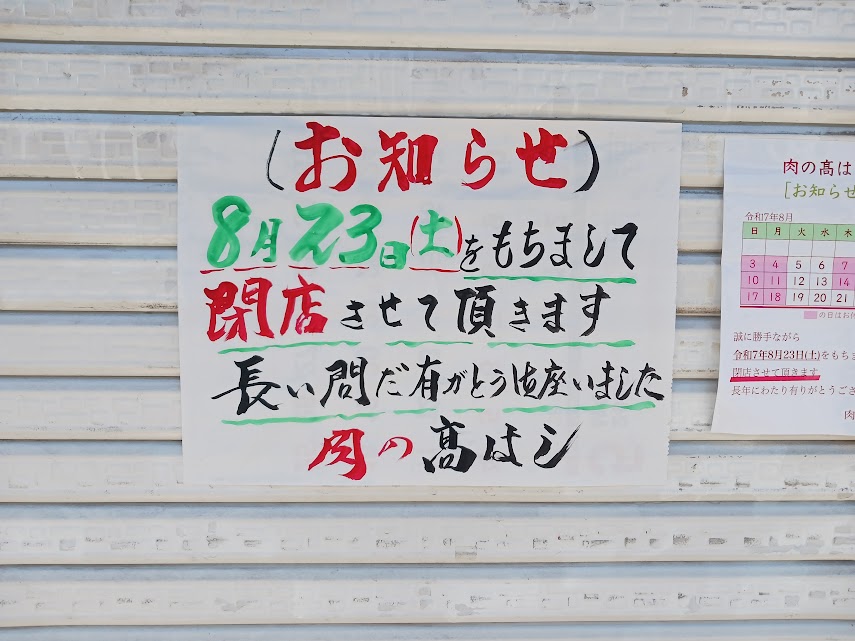 (お知らせ)
8月23日(土)をもちまして
閉店させて頂きます
長い間だ有がとう御座いました
肉の髙はし
肉の髙は
[お知らせ
令和7年8月
日 月 火 水 木
3 4 5 6 7
10 11 12 13 14
17 18 19 20 21
の日はお休
誠に勝手ながら
令和7年8月23日(土)をもちま
閉店させて頂きます
長年にわたり有りがとうござ
肉